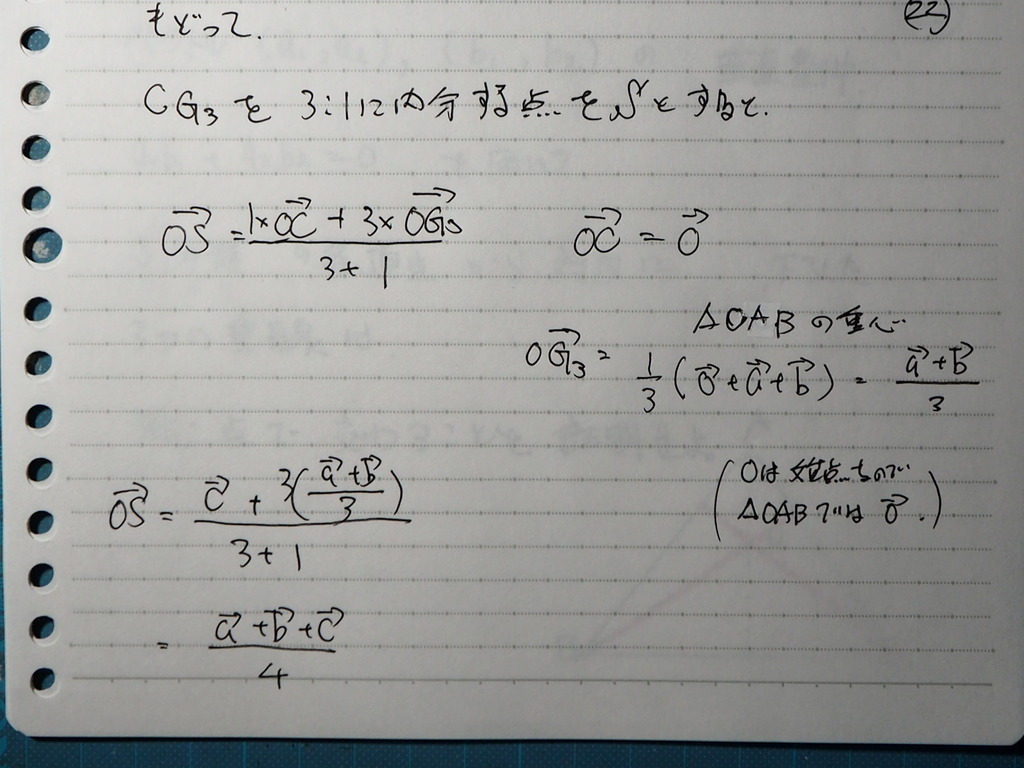 もどって.
(22)
CG₃を 3:1に内分する点をSとすると.
\vec{OS} = \frac{1×\vec{OC} + 3×\vec{OG₃}}{3+1}
\vec{OC} = \vec{O}
△OABの重心
\vec{OG₃} = \frac{1}{3}(\vec{O}+\vec{a}+\vec{b}) = \frac{\vec{a}+\vec{b}}{3}
\vec{OS} = \frac{\vec{c} + 3(\frac{\vec{a}+\vec{b}}{3})}{3+1}
(Oは始点なので
△OABでは \vec{O}.)
= \frac{\vec{a}+\vec{b}+\vec{c}}{4}